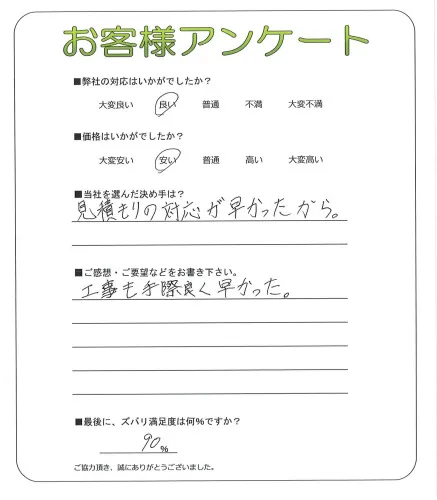 お客様アンケート
■弊社の対応はいかがでしたか？
大変良い 良い 普通 不満 大変不満
■価格はいかがでしたか？
大変安い 安い 普通 高い 大変高い
■当社を選んだ決め手は？
見積もりの対応が早かったから。
■ご感想・ご要望などをお書き下さい。
工事も手際良く早かった。
■最後に、ズバリ満足度は何%ですか？
90%
ご協力頂き、誠にありがとうございました。